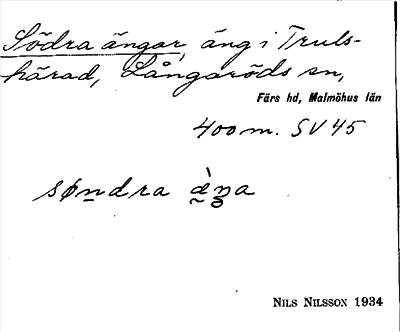 Södra ängar, äng i Truls-
härad, Långaröds sn,
Färs hd, Malmöhus län
400 m. SV 45
søndra æ̀ŋa
NILS NILSSON 1934